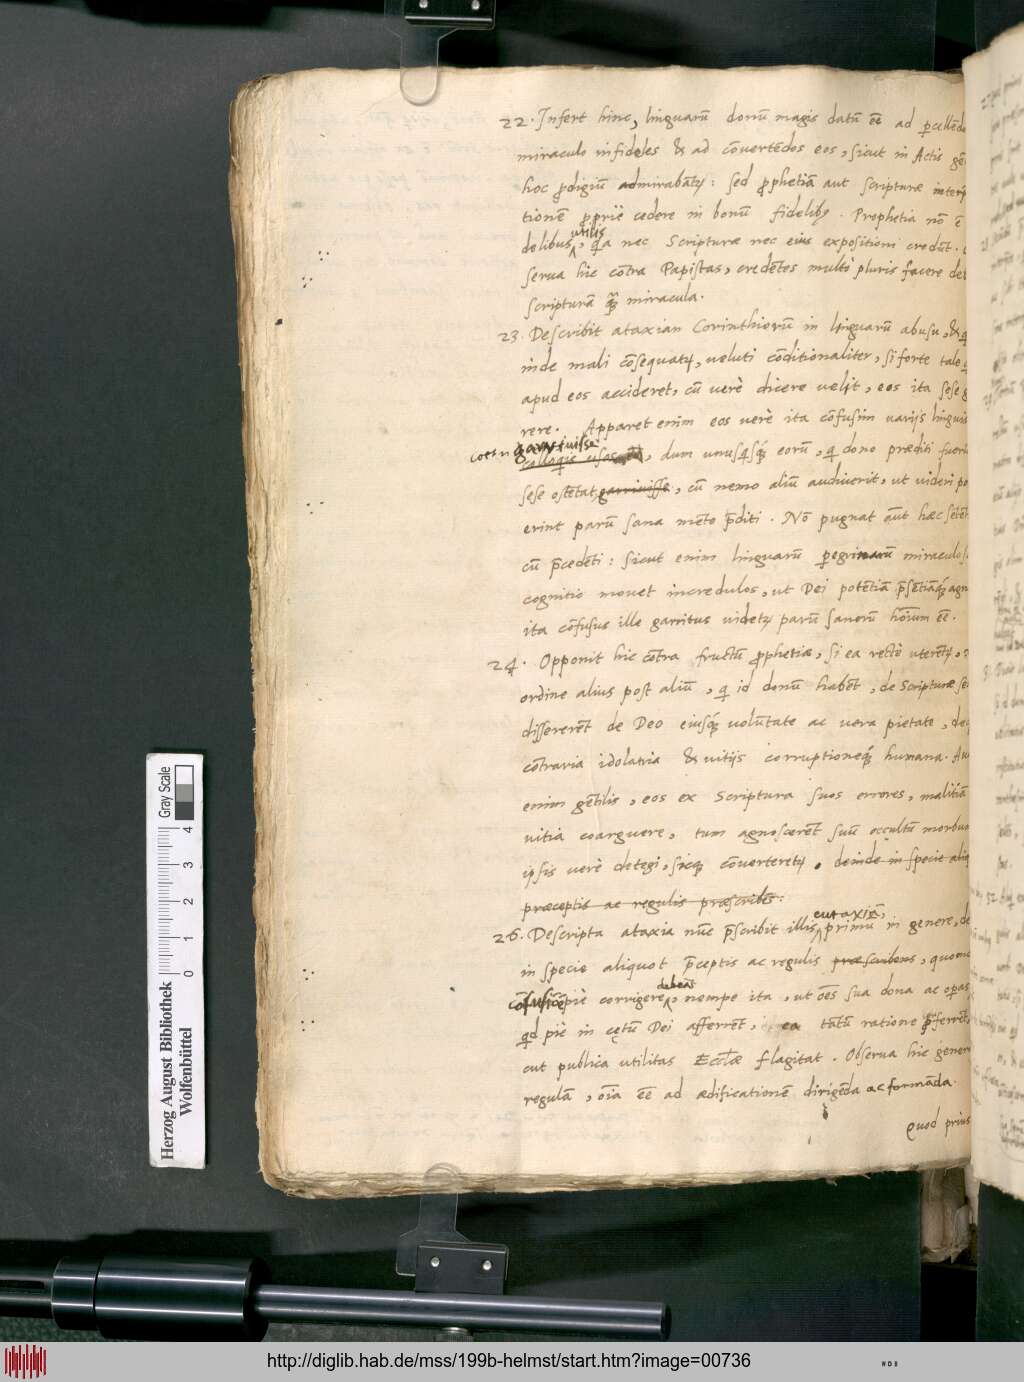 22. Infert hinc, linguarū donū magis datū eē ad p̱cellēdo
miraculo infideles & ad cōvertēdos eos, sicut in Actis gē
hoc prodigiū admirabātꝰ: sed prophetiā aut scripturæ interp
tionē propriè cedere in bonū fidelibꝰ. Prophetia nō ē
utilis
delibus, qa nec Scripturæ nec eius expositioni credūt.
serua hic cōtra Papistas, credētes multò pluris facere de
scripturā quā miracula.
23. Describit ataxian Corinthiorū in linguarū abusu, & q
inde mali cōsequatꝰ, veluti cōditionaliter, si forte tale
apud eos accideret, cū verè dicere velit, eos ita sese g
rere. Apparet enim eos verè ita cōfusim varijs linguis
garriuisse
colloquijs usos, dum unusqsq; eorū, q dono præditi fuer
sese ostētat garriuisse, cū nemo aliū audiverit, ut videri po
erint parū sana mēte p̄diti. Nō pugnat aūt hæc setēt
cū p̄cedēti: sicut enim linguarū peregrinarū miraculos
cognitio movet incredulos, ut Dei potētiā p̄sētiāq; agn
ita cōfusus ille garritus videtꝰ parū sanorū hoīum eē.
24. Opponit hic cōtra fructū prophetiæ, si ea rectè uterētꝰ,
ordine alius post aliū, q id donū habēt, de Scripturæ se
dissererēt de Deo eiusq; volūtate ac vera pietate, de
cōtraria idolatria & vitijs corruptioneq; humana. Au
enim gētilis, eos ex Scriptura suos errores, malitiā
vitia coarguere, tum agnoscerēt suū occultū morbū
ipsis verè detegi, sicq; cōverteretꝰ. deinde in specie aliq
præceptis ac regulis præscribēs:
eutaxiē,
26. Descripta ataxia nūc p̄scribit illis primū in genere, de
in specie aliquot p̄ceptis ac regulis præscribens, quomo
debeāt
piè corrigere, nempe ita, ut oēs sua dona ac opas
qd piè in cętū Dei afferrēt, ea tātū ratione p̄ferrēt
cut publica utilitas Ecclæ flagitat. Observa hic gener
regulā, oīa eē ad ædificationē dirigēda ac formāda.
Quod prius
Herzog August Bibliothek
Wolfenbüttel
0 1 2 3 4
Gray Scale
http://diglib.hab.de/mss/199b-helmst/start.htm?image=00736